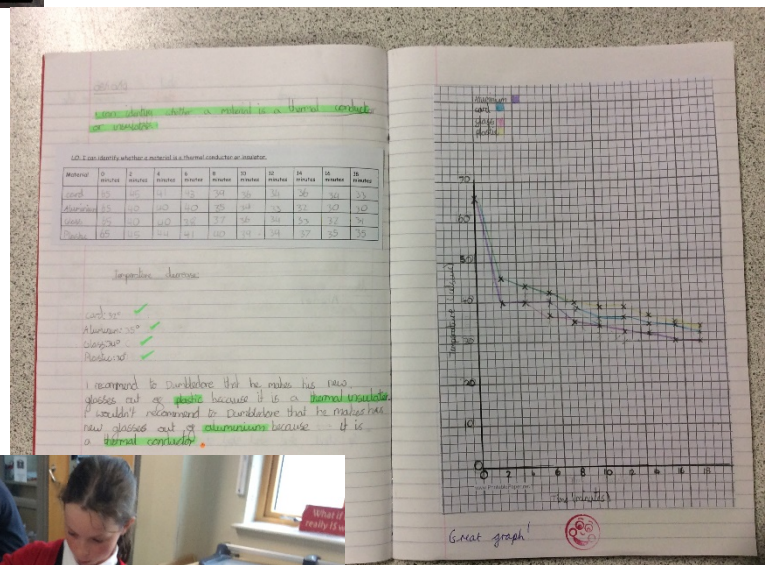 I can identify whether a material is a thermal conductor
or insulator.
LO: I can identify whether a material is a thermal conductor or insulator.
Material 0 minutes 2 minutes 4 minutes 6 minutes 8 minutes 10 minutes 12 minutes 14 minutes 16 minutes 18 minutes
Card 45 41 42 39 36 34 36 34
Aluminium 40 40 40 35 34 32 30 30
Glass 40 40 37 36 34 33 32 31
Plastic 65 45 44 41 40 39 37 35 35
Temperature decrease
Card:
Aluminium: 35°
Glass:
Plastic:
I recommend to Dumbledore that he makes his new
glasses out of plastic because it is a thermal insulator.
I wouldn't recommend to Dumbledore that he makes his
new glasses out of aluminium because it is
a thermal conductor.
Aluminium
card
glass
plastic
70
60
50
40
30
20
10
0 2 4 6 8 10 12 14 16 18
Temperature (celsius)
Time (minutes)
Great graph!
What if
really is w